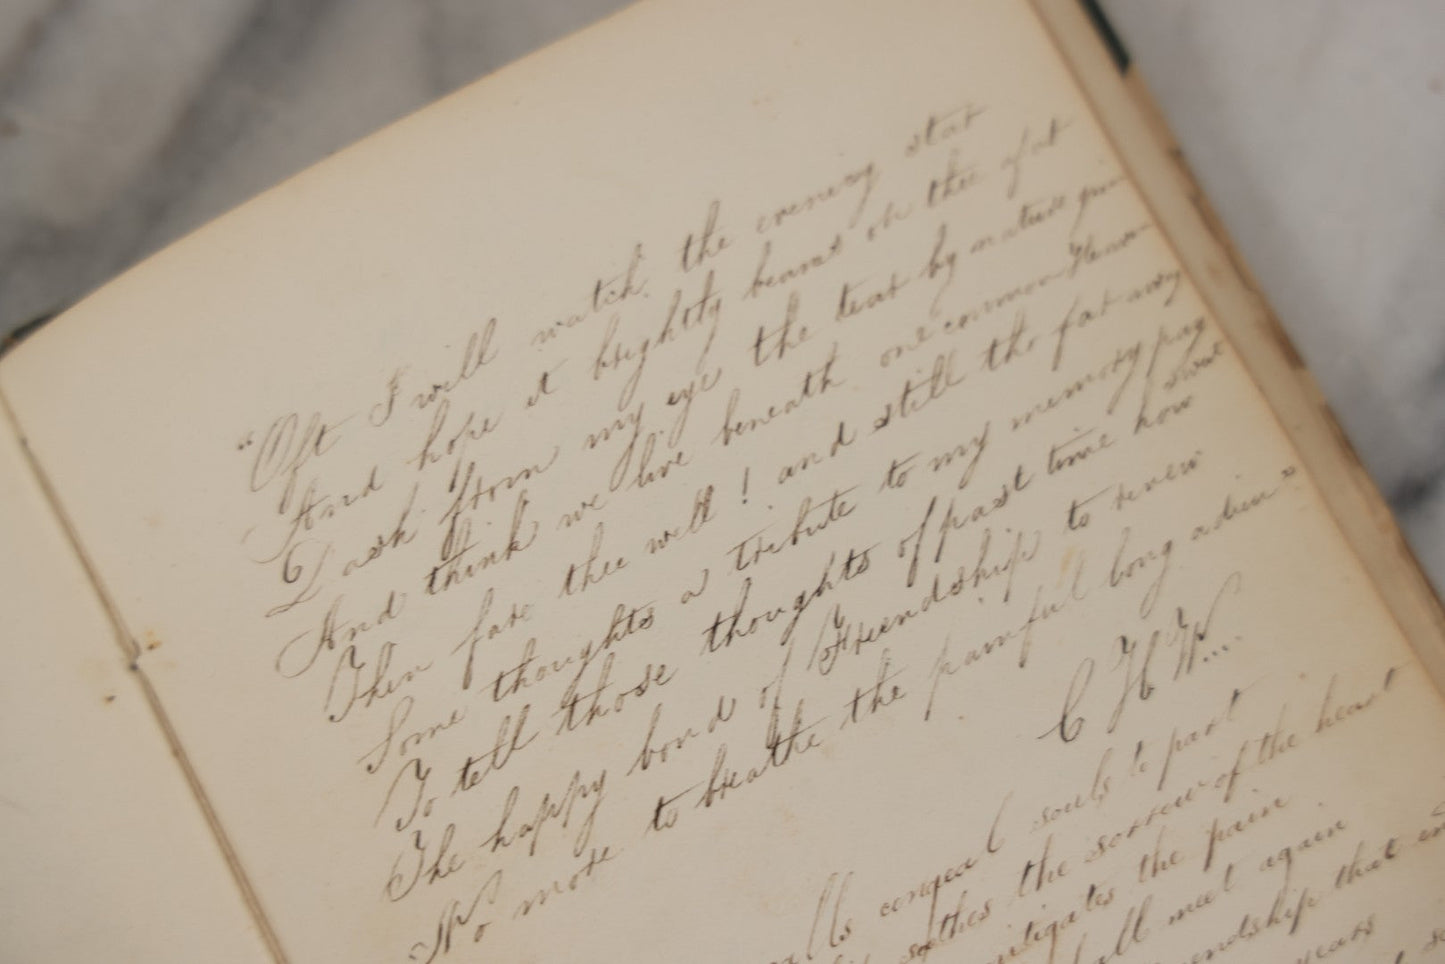 "Oft I will watch the evening star
And hope it brightly beams on thee afar
Dash from my eye the tear by nature giv
And think we live beneath one common Heav
Then fare thee well! and still tho far away
Some thoughts a tribute to my memory pay
To tell those thoughts of past time how sweet
The happy bond of Friendship to renew
No more to breathe the painful long adieu"
C H W...
congeal souls to part
soothes the sorrow of the heart
mitigates the pain
shall meet again
friendship that
years